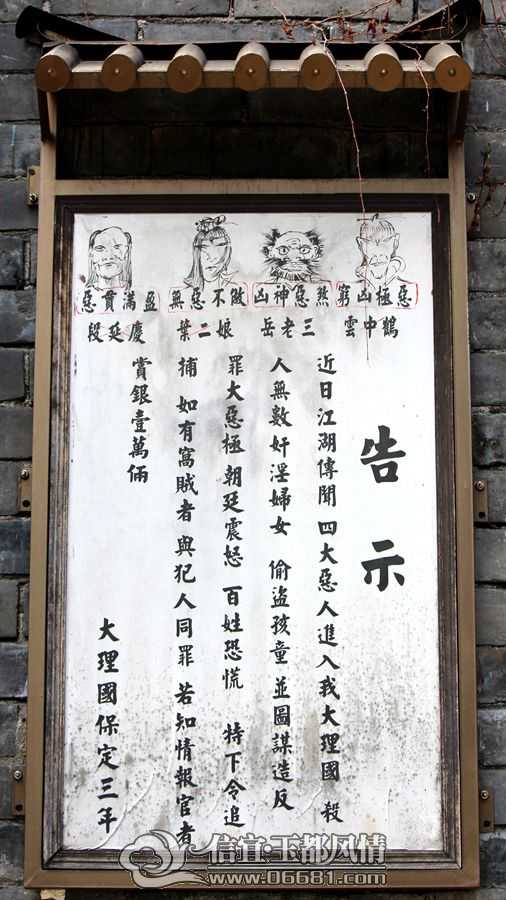 惡貫滿盈 無惡不做 凶神惡煞 窮凶極惡
段延慶 葉二娘 岳老三 雲中鶴
告示
近日江湖傳聞 四大惡人進入我大理國 殺
人無數奸淫婦女 偷盜孩童 並圖謀造反
罪大惡極 朝廷震怒 百姓恐慌 特下令追
捕 如有窩賊者 與犯人同罪 若知情報官者
賞銀壹萬倆
大理國保定三年
信宜·玉都风情
www.06681.com